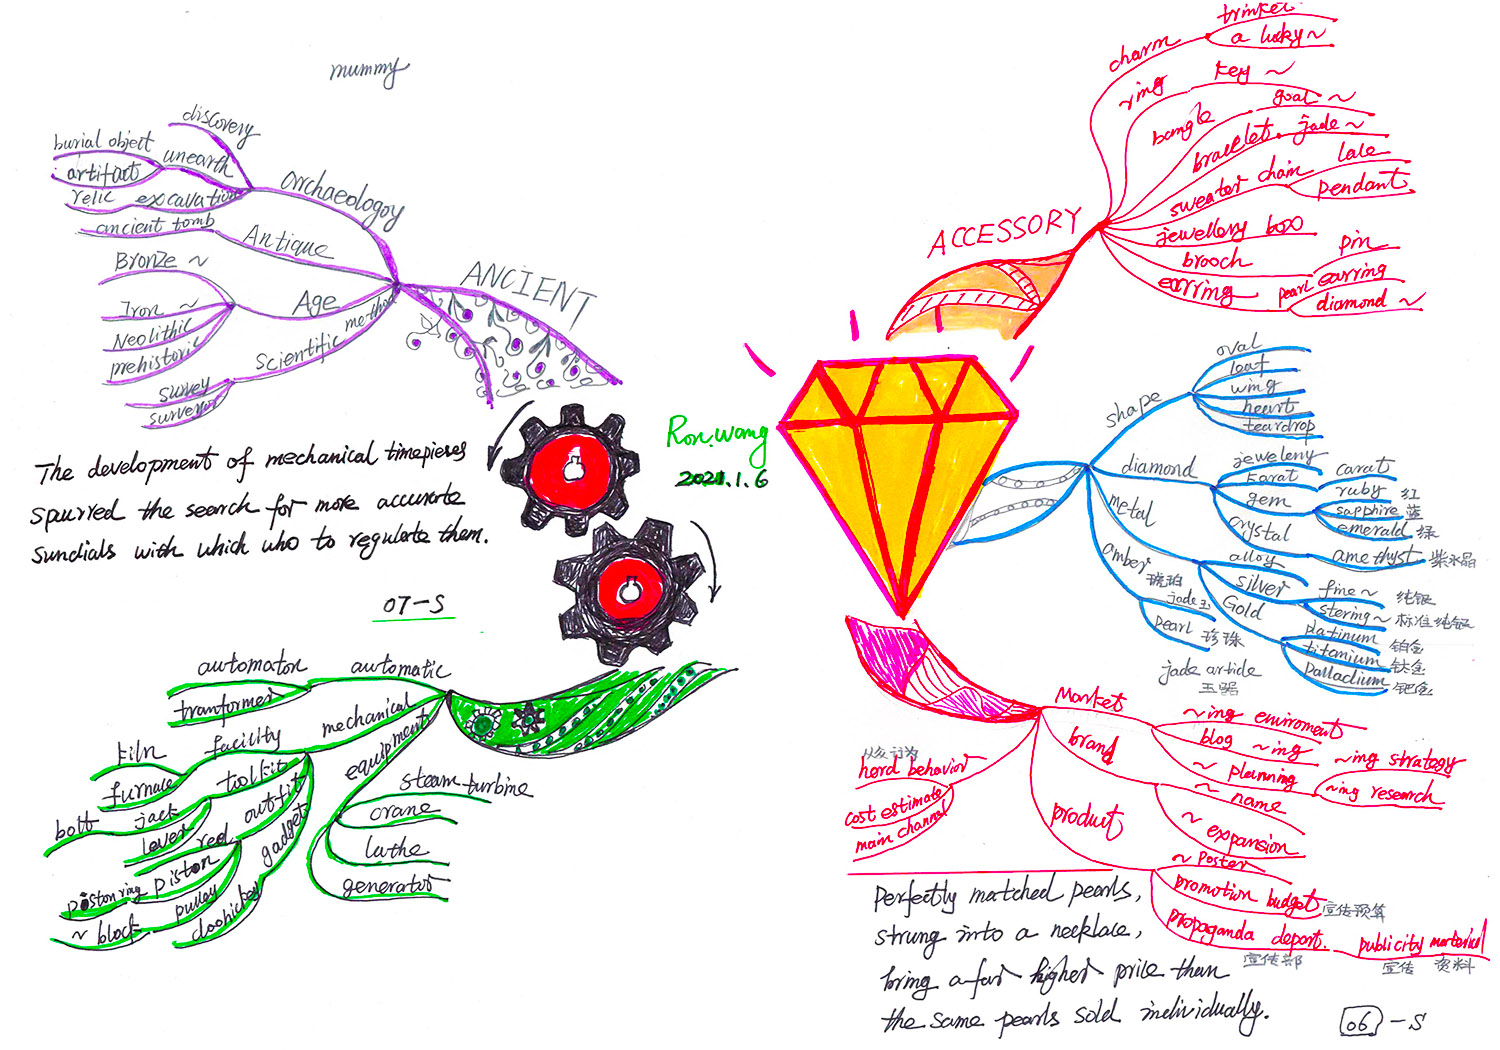 mummy
discovery
burial object
unearth
artifact
relic
excavation
archaeologoy
ancient tomb
Antique
Bronze ~
Iron ~
Age
Neolithic
prehistoric
Scientific method
survey
surveyor
ANCIENT
The development of mechanical timepieses
spurred the search for more accurate
sundials with which who to regulate them.
07-S
automaton
automatic
tranformer
mechanical
equipment
facility
kiln
furnace
toolkit
jack
bolt
lever
outfit
rod
piston
piston ring
pulley
~ block
gadget
doohickey
steam turbine
crane
lathe
generator
Ron.Wang
2021.1.6
ACCESSORY
charm
trinket
a lucky ~
ring
key ~
bangle
goal ~
bracelet
jade ~
sweater chain
lace
pendant
jewellery box
brooch
pin
earring
pearl earring
diamond ~
shape
oval
leaf
wing
heart
teardrop
diamond
jeweleny
karat
carat
gem
ruby 红
sapphire 蓝
emerald 绿
crystal
amethyst 紫水晶
metal
alloy
silver
fine ~ 纯银
stering ~ 标准纯银
Gold
platinum 铂金
titanium 钛金
palladium 钯金
amber
琥珀
jade 玉
pearl 珍珠
jade article
玉器
Market
~ing enviroment
blog ~ing
~ planning
~ing strategy
~ing research
brand
~ name
~ expansion
product
~ Poster
promotion budget 宣传预算
propaganda depart.
宣传部
publicity material
宣传 资料
从众行为
herd behavior
cost estimate
main channel
Perfectly matched pearls,
strung into a necklace,
bring a far higher price than
the same pearls sold individually.
06-S